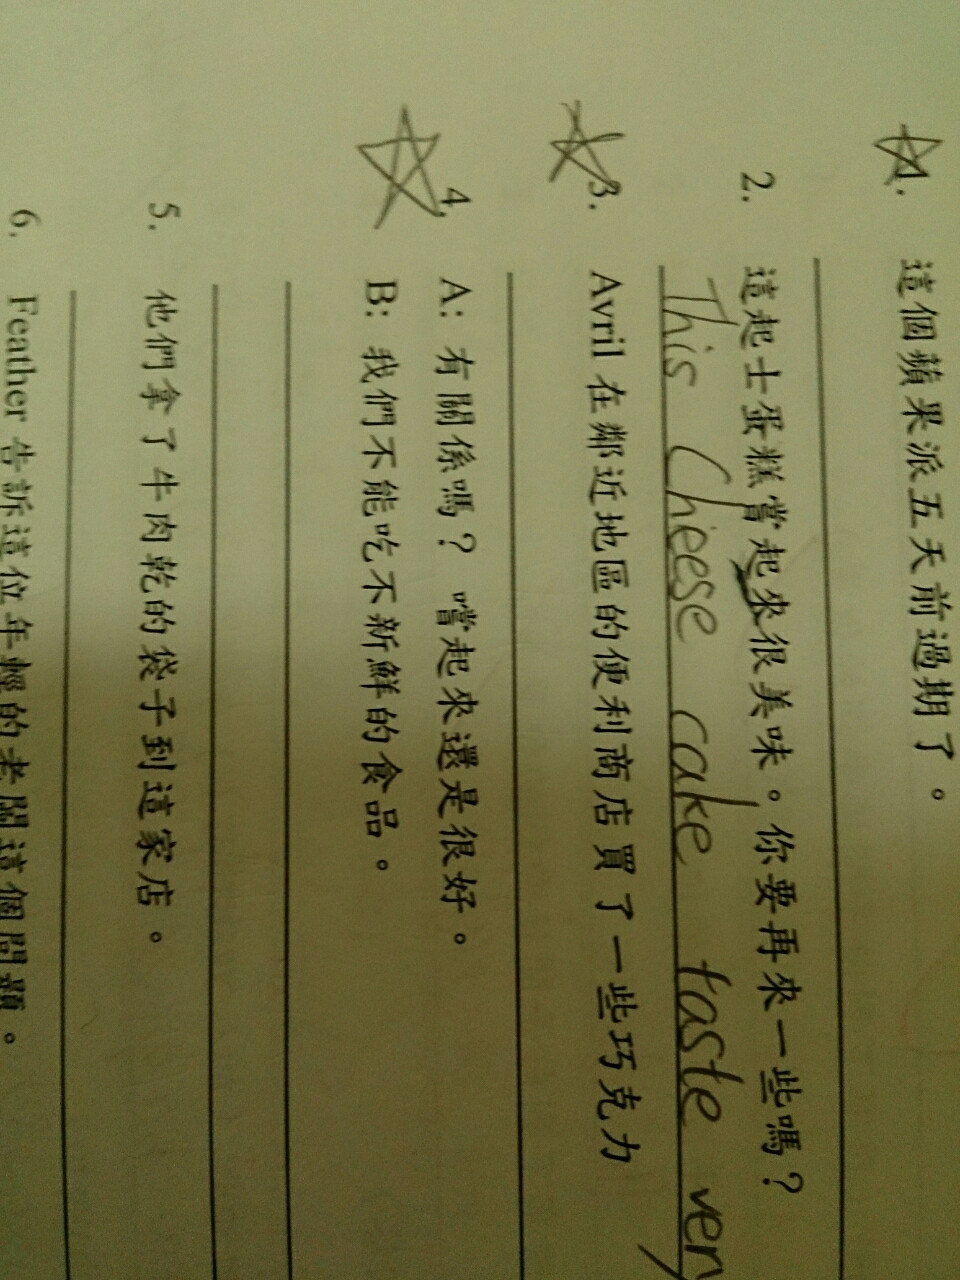 1. 這個蘋果派五天前過期了。
2. 這起士蛋糕嘗起來很美味。你要再來一些嗎？
This Cheese cake taste very
3. Avril 在鄰近地區的便利商店買了一些巧克力
4. A: 有關係嗎？ 嚐起來還是很好。
B: 我們不能吃不新鮮的食品。
5. 他們拿了牛肉乾的袋子到這家店。
6. Feather 告訴這位年輕的老闆這個問題。